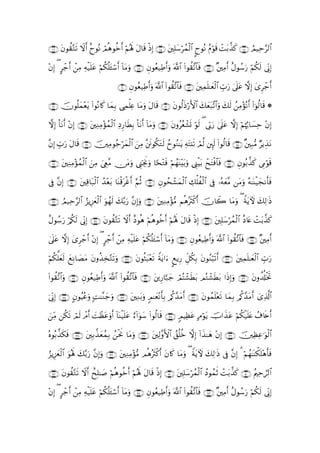 ٱلرَّحِيمُ ۝ كَذَّبَتْ قَوْمُ نُوحٍ ٱلْمُرْسَلِينَ ۝ إِذْ قَالَ لَهُمْ أَخُوهُمْ نُوحٌ أَلَا تَتَّقُونَ ۝
إِنِّى لَكُمْ رَسُولٌ أَمِينٌ ۝ فَٱتَّقُوا۟ ٱللَّهَ وَأَطِيعُونِ ۝ وَمَآ أَسْـَٔلُكُمْ عَلَيْهِ مِنْ أَجْرٍ ۖ إِنْ
أَجْرِىَ إِلَّا عَلَىٰ رَبِّ ٱلْعَـٰلَمِينَ ۝ فَٱتَّقُوا۟ ٱللَّهَ وَأَطِيعُونِ ۝
* قَالُوٓا۟ أَنُؤْمِنُ لَكَ وَٱتَّبَعَكَ ٱلْأَرْذَلُونَ ۝ قَالَ وَمَا عِلْمِى بِمَا كَانُوا۟ يَعْمَلُونَ ۝
إِنْ حِسَابُهُمْ إِلَّا عَلَىٰ رَبِّى ۖ لَوْ تَشْعُرُونَ ۝ وَمَآ أَنَا۠ بِطَارِدِ ٱلْمُؤْمِنِينَ ۝ إِنْ أَنَا۠ إِلَّا
نَذِيرٌ مُّبِينٌ ۝ قَالُوا۟ لَئِن لَّمْ تَنتَهِ يَـٰنُوحُ لَتَكُونَنَّ مِنَ ٱلْمَرْجُومِينَ ۝ قَالَ رَبِّ إِنَّ
قَوْمِى كَذَّبُونِ ۝ فَٱفْتَحْ بَيْنِى وَبَيْنَهُمْ فَتْحًا وَنَجِّنِى وَمَن مَّعِىَ مِنَ ٱلْمُؤْمِنِينَ ۝
فَأَنجَيْنَـٰهُ وَمَن مَّعَهُۥ فِى ٱلْفُلْكِ ٱلْمَشْحُونِ ۝ ثُمَّ أَغْرَقْنَا بَعْدُ ٱلْبَاقِينَ ۝ إِنَّ فِى
ذَٰلِكَ لَـَٔايَةً ۖ وَمَا كَانَ أَكْثَرُهُم مُّؤْمِنِينَ ۝ وَإِنَّ رَبَّكَ لَهُوَ ٱلْعَزِيزُ ٱلرَّحِيمُ ۝
كَذَّبَتْ عَادٌ ٱلْمُرْسَلِينَ ۝ إِذْ قَالَ لَهُمْ أَخُوهُمْ هُودٌ أَلَا تَتَّقُونَ ۝ إِنِّى لَكُمْ رَسُولٌ
أَمِينٌ ۝ فَٱتَّقُوا۟ ٱللَّهَ وَأَطِيعُونِ ۝ وَمَآ أَسْـَٔلُكُمْ عَلَيْهِ مِنْ أَجْرٍ ۖ إِنْ أَجْرِىَ إِلَّا عَلَىٰ
رَبِّ ٱلْعَـٰلَمِينَ ۝ أَتَبْنُونَ بِكُلِّ رِيعٍ ءَايَةً تَعْبَثُونَ ۝ وَتَتَّخِذُونَ مَصَانِعَ لَعَلَّكُمْ
تَخْلُدُونَ ۝ وَإِذَا بَطَشْتُم بَطَشْتُمْ جَبَّارِينَ ۝ فَٱتَّقُوا۟ ٱللَّهَ وَأَطِيعُونِ ۝ وَٱتَّقُوا۟
ٱلَّذِىٓ أَمَدَّكُم بِمَا تَعْلَمُونَ ۝ أَمَدَّكُم بِأَنْعَـٰمٍ وَبَنِينَ ۝ وَجَنَّـٰتٍ وَعُيُونٍ ۝ إِنِّىٓ
أَخَافُ عَلَيْكُمْ عَذَابَ يَوْمٍ عَظِيمٍ ۝ قَالُوا۟ سَوَآءٌ عَلَيْنَآ أَوَعَظْتَ أَمْ لَمْ تَكُن مِّنَ
ٱلْوَٰعِظِينَ ۝ إِنْ هَـٰذَآ إِلَّا خُلُقُ ٱلْأَوَّلِينَ ۝ وَمَا نَحْنُ بِمُعَذَّبِينَ ۝ فَكَذَّبُوهُ
فَأَهْلَكْنَـٰهُمْ ۗ إِنَّ فِى ذَٰلِكَ لَـَٔايَةً ۖ وَمَا كَانَ أَكْثَرُهُم مُّؤْمِنِينَ ۝ وَإِنَّ رَبَّكَ لَهُوَ ٱلْعَزِيزُ
ٱلرَّحِيمُ ۝ كَذَّبَتْ ثَمُودُ ٱلْمُرْسَلِينَ ۝ إِذْ قَالَ لَهُمْ أَخُوهُمْ صَـٰلِحٌ أَلَا تَتَّقُونَ ۝
إِنِّى لَكُمْ رَسُولٌ أَمِينٌ ۝ فَٱتَّقُوا۟ ٱللَّهَ وَأَطِيعُونِ ۝ وَمَآ أَسْـَٔلُكُمْ عَلَيْهِ مِنْ أَجْرٍ ۖ إِنْ